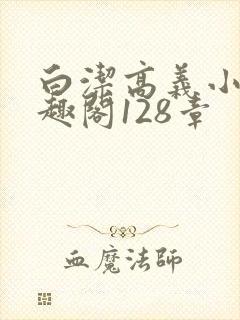 白潔高義小
趣閣128章
血魔法師